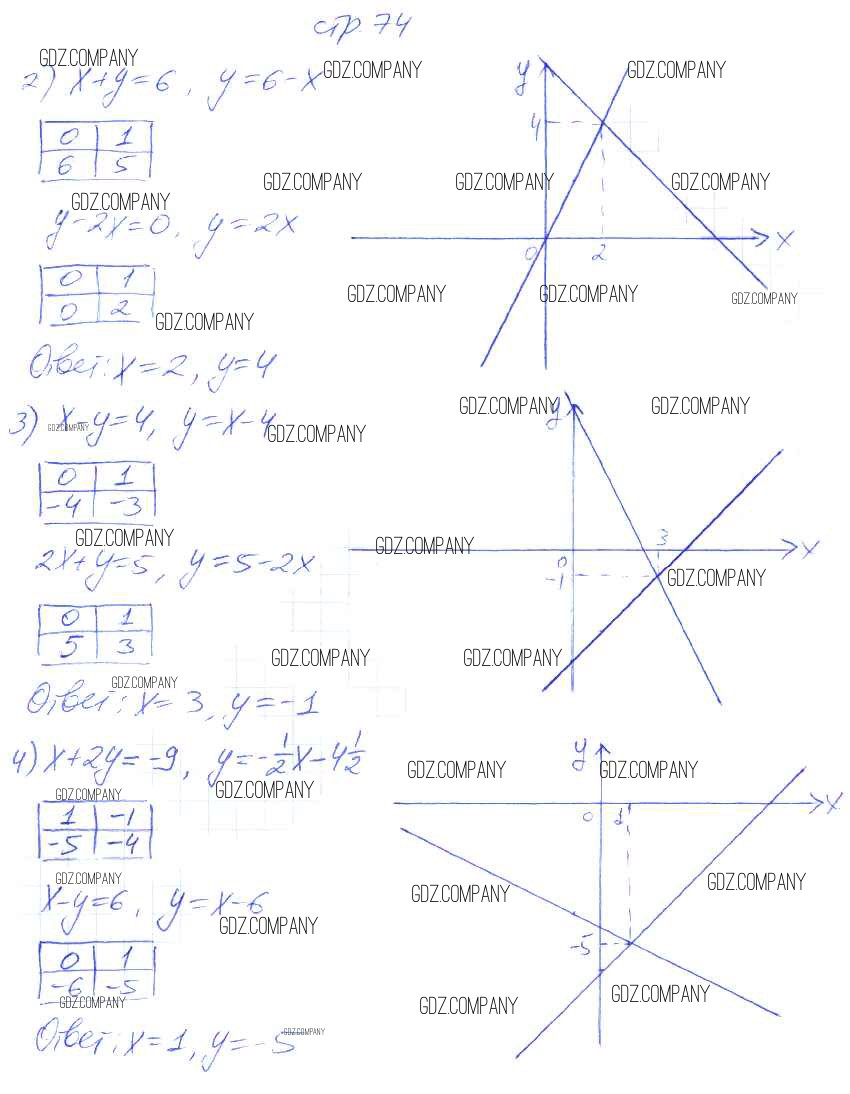 стр. 74
GDZ.COMPANY
2) x+y=6, y=6-x
GDZ.COMPANY
GDZ.COMPANY
0 1
6 5
GDZ.COMPANY
GDZ.COMPANY
GDZ.COMPANY
GDZ.COMPANY
y-2x=0, y=2x
0 1
0 2
GDZ.COMPANY
Ответ: x=2, y=4
y
4
0
2
x
GDZ.COMPANY
GDZ.COMPANY
GDZ.COMPANY
3) x-y=4, y=x-4
GDZ.COMPANY
GDZ.COMPANY
0 1
-4 -3
GDZ.COMPANY
2x+y=5, y=5-2x
0 1
5 3
GDZ.COMPANY
Ответ: x=3, y=-1
GDZ.COMPANY
GDZ.COMPANY
y
3
0
-1
x
GDZ.COMPANY
GDZ.COMPANY
GDZ.COMPANY
GDZ.COMPANY
4) x+2y=-9, y=-1/2x-4 1/2
GDZ.COMPANY
GDZ.COMPANY
1 -1
-5 -4
GDZ.COMPANY
x-y=6, y=x-6
GDZ.COMPANY
0 1
-6 -5
GDZ.COMPANY
Ответ: x=1, y=-5
GDZ.COMPANY
y
0
1
x
-5
GDZ.COMPANY
GDZ.COMPANY
GDZ.COMPANY
GDZ.COMPANY
GDZ.COMPANY
GDZ.COMPANY